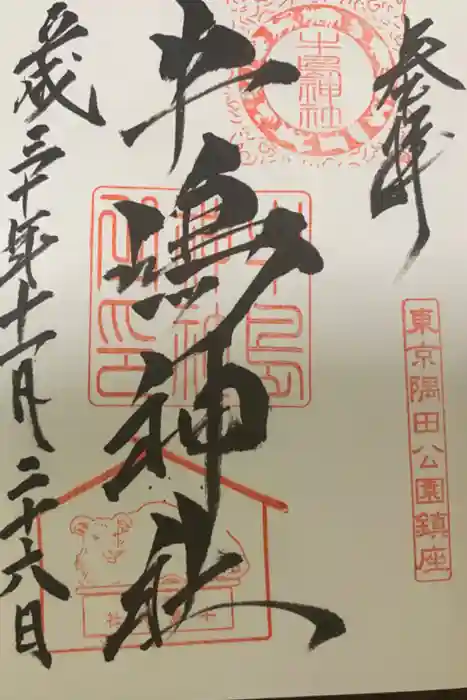 奉拝
東京隅田公園鎮座
牛嶋神社
牛嶋神社
平成三十年十一月二十六日